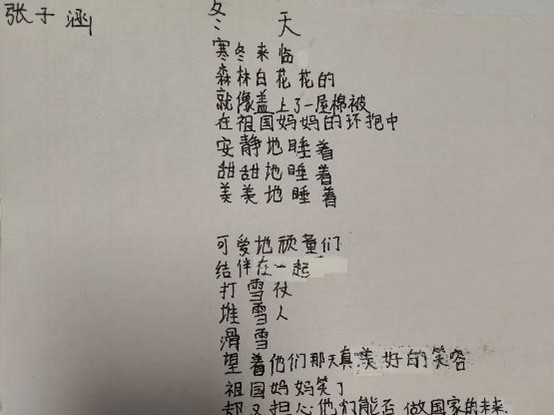 张子涵
冬天
寒冬来临
森林白花花的
就像盖上了一层棉被
在祖国妈妈的环抱中
安静地睡着
甜甜地睡着
美美地睡着
可爱地顽童们
结伴在一起
打雪仗
堆雪人
滑雪
望着他们那天真美好的笑容
祖国妈妈笑了
却又担心他们能否做国家的未来